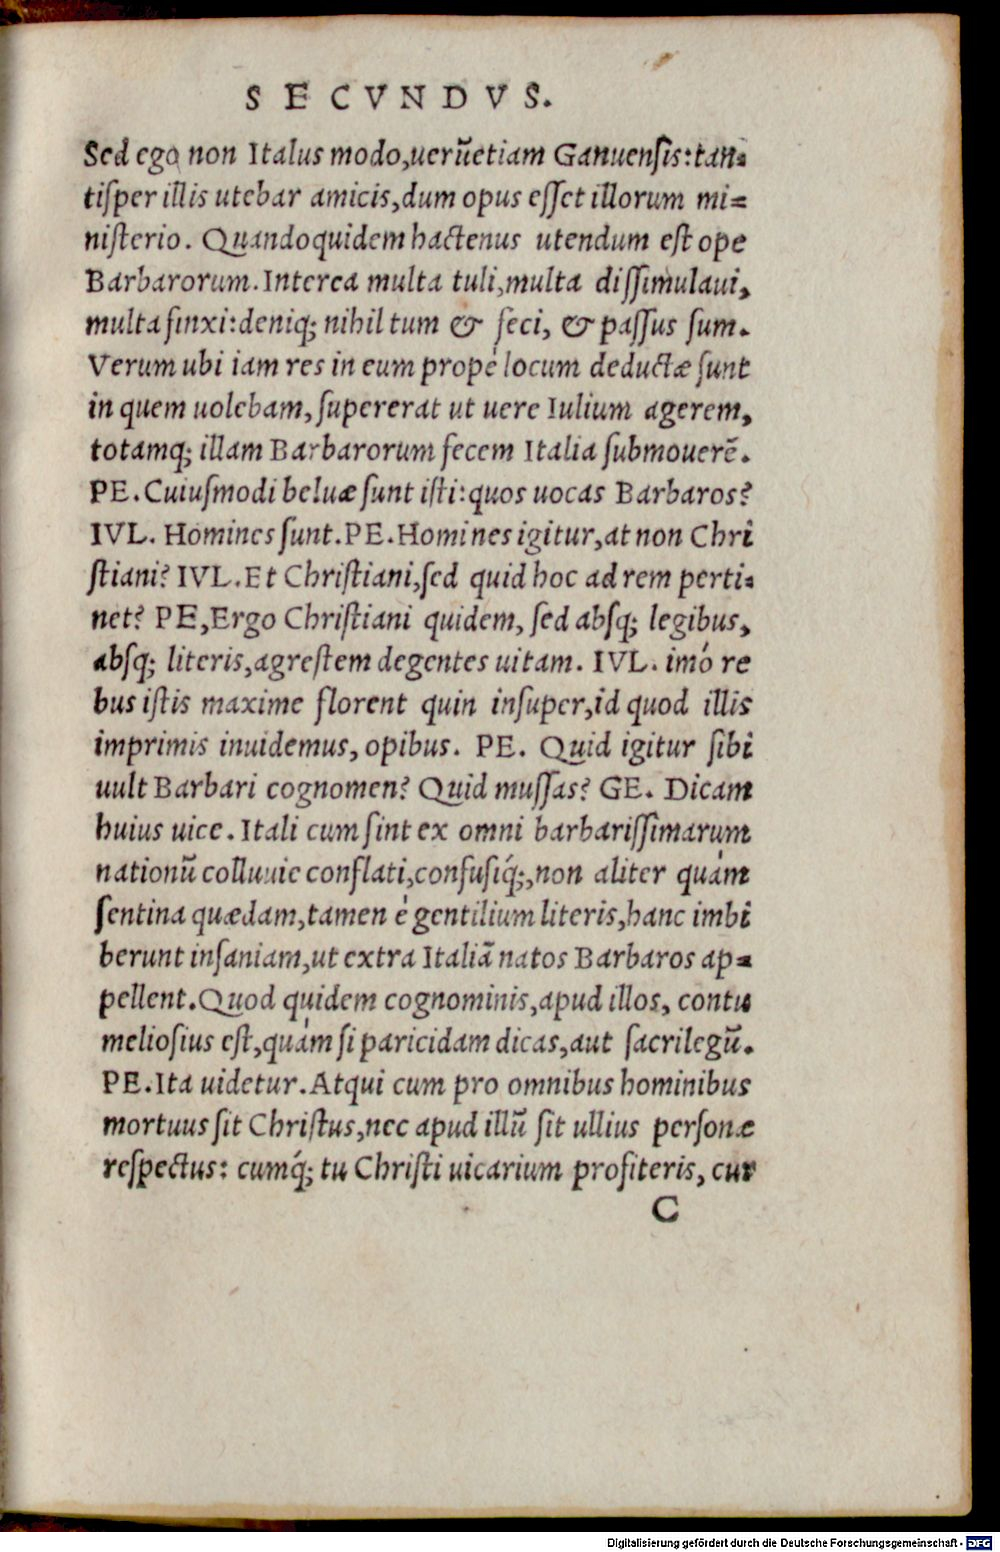 SECVNDVS.
Sed ego non Italus modo,uerũetiam Ganuensis:tan-
tisper illis utebar amicis,dum opus esset illorum mi-
nisterio. Quandoquidem hactenus utendum est ope
Barbarorum.Interea multa tuli,multa dissimulaui,
multa finxi:deniq; nihil tum & feci, & passus sum.
Verum ubi iam res in eum propè locum deductæ sunt
in quem uolebam,supererat ut uere Iulium agerem,
totamq; illam Barbarorum fecem Italia submouerẽ.
PE.Cuiusmodi beluæ sunt isti:quos uocas Barbaros?
IVL. Homines sunt.PE.Homines igitur,at non Chri
stiani? IVL.Et Christiani,sed quid hoc ad rem perti-
net? PE,Ergo Christiani quidem, sed absq; legibus,
absq; literis,agrestem degentes uitam. IVL. imó re
bus istis maxime florent quin insuper,id quod illis
imprimis inuidemus, opibus. PE. Quid igitur sibi
uult Barbari cognomen? Quid mussas? GE. Dicam
huius uice. Itali cum sint ex omni barbarissimarum
nationũ colluuie conflati,confusiq́;,non aliter quàm
sentina quædam,tamen è gentilium literis,hanc imbi
berunt insaniam,ut extra Italiã natos Barbaros ap-
pellent.Quod quidem cognominis,apud illos, contu
meliosius est,quàm si paricidam dicas,aut sacrilegũ.
PE.Ita uidetur.Atqui cum pro omnibus hominibus
mortuus sit Christus,nec apud illũ sit ullius personæ
respectus: cumq́; tu Christi uicarium profiteris, cur
C
Digitalisierung gefördert durch die Deutsche Forschungsgemeinschaft - DFG